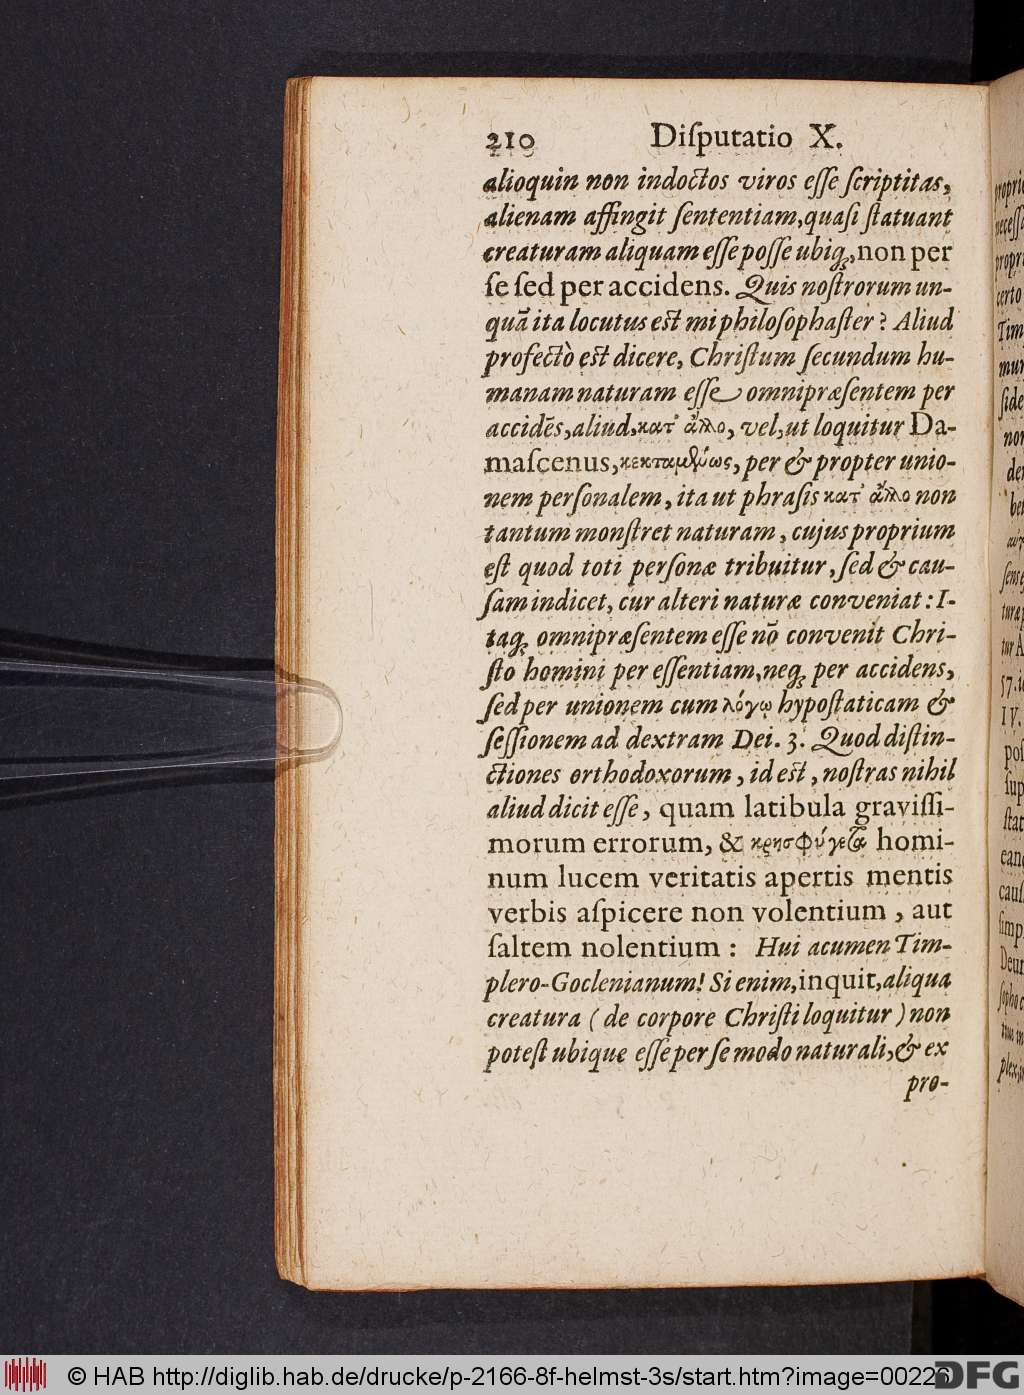 210 Diſputatio X.
alioquin non indoctos viros eſſe ſcriptitas,
alienam affingit ſententiam, quaſi ſtatuant
creaturam aliquam eſſe poſſe ubiq;, non per
ſe ſed per accidens. Quis noſtrorum un-
quã ita locutus est mi philoſophaſter? Aliud
profectò est dicere, Chriſtum ſecundum hu-
manam naturam eſſe omnipræſentem per
accidẽs, aliud, κατ' ἄλλο, vel, ut loquitur Da-
maſcenus, κεκταμθύως, per & propter unio-
nem perſonalem, ita ut phraſis κατ' ἄλλο non
tantum monſtret naturam, cujus proprium
eſt quod toti perſonæ tribuitur, ſed & cau-
ſam indicet, cur alteri naturæ conveniat: I-
taq; omnipræſentem eſſe nõ convenit Chri-
ſto homini per eſſentiam, neq; per accidens,
ſed per unionem cum λόγῳ hypoſtaticam &
ſeſſionem ad dextram Dei. 3. Quod diſtin-
ctiones orthodoxorum, id est, noſtras nihil
aliud dicit eſſe, quam latibula graviſſi-
morum errorum, & κρησφύγετα homi-
num lucem veritatis apertis mentis
verbis aſpicere non volentium, aut
ſaltem nolentium: Hui acumen Tim-
plero-Goclenianum! Si enim, inquit, aliqua
creatura (de corpore Chriſti loquitur) non
poteſt ubique eſſe per ſe modo naturali, & ex
pro-
© HAB http://diglib.hab.de/drucke/p-2166-8f-helmst-3s/start.htm?image=00226
DFG